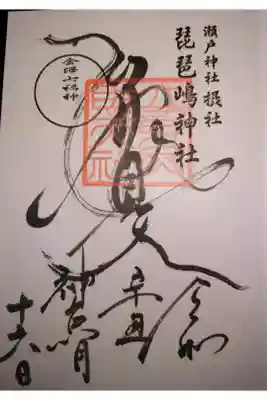 瀬戸神社 摂社
琵琶嶋神社
令和
辛丑
神無月
十六日
金澤七福神